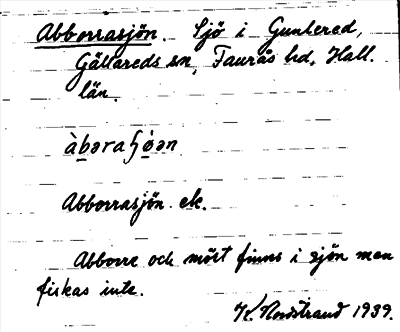 Abborrasjön. Sjö i Gunnered,
Gällareds sn, Faurås hd. Hall.
län.
àbəraʃóən
Abborrasjön ek.
Abborre och mört finns i sjön men
fiskas inte.
K. Nordstrand 1939.